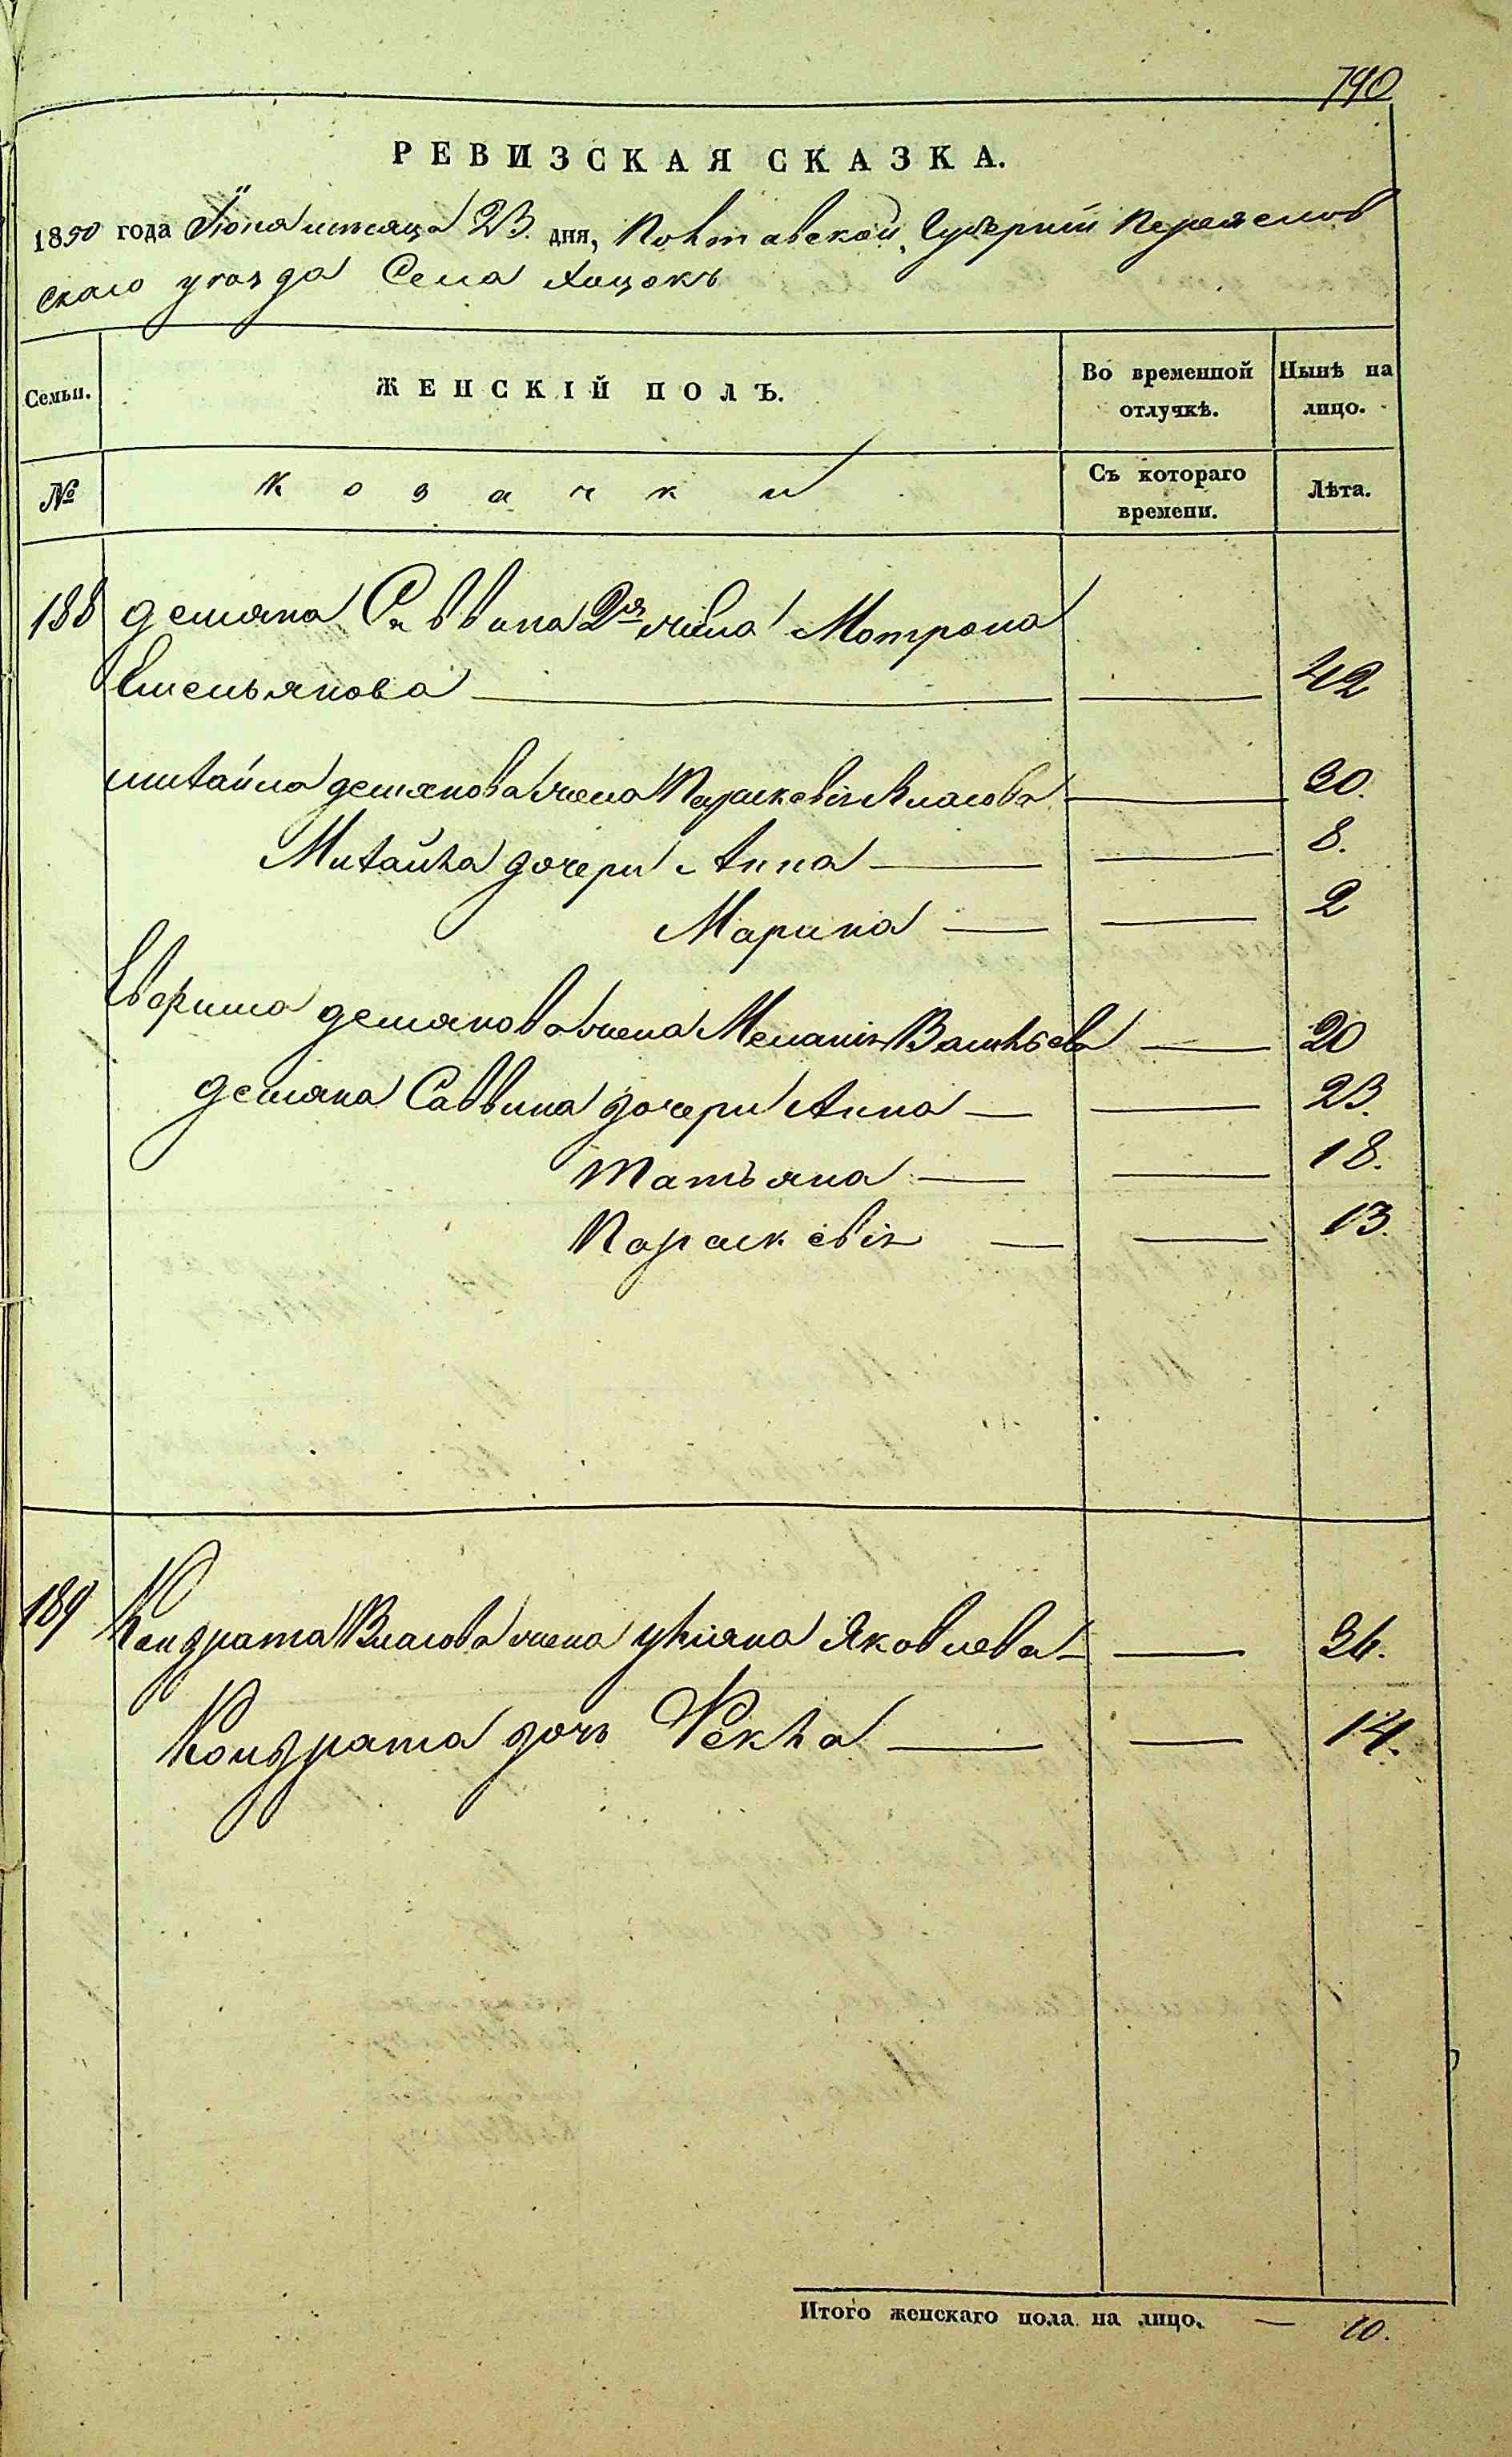 790
РЕВИЗСКАЯ СКАЗКА.
1850 года Іюня месяца 23. дня, Полтавской Губерніи Переяслов
скаго уезда Села Хоцокъ
Семьи.
ЖЕНСКІЙ ПОЛЪ.
Во временной отлучкѣ.
Нынѣ на лицо.
№
Козачки
Съ котораго времени.
Лѣта.
188 Демяна Саввина 2я жена Мотрона
Емельянова 42
Михайла Демянова жена Параскевія Власова 30.
Михайла дочери Анна 8.
Марина 2
Евфима Демянова жена Меланія Васильева 20
Демяна Саввина дочери Анна 23.
Татьяна 18.
Параскевія 13.
189 Кондрата Власова жена Уліяна Яковлева 36.
Кондрата дочь Фекла 14.
Итого женскаго пола на лицо. — 10.